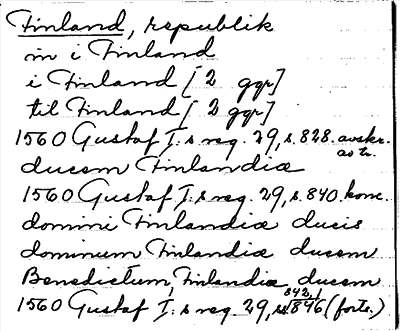 Finland, republik
in i Finland
i Finland [2 ggr]
til Finland [2 ggr]
1560 Gustaf I:s reg. 29, s. 828. avskr.
av tr.
ducem Finlandiæ
1560 Gustaf I:s reg. 29, s. 840. konc.
domini Finlandiæ ducis
dominum Finlandiæ ducem
Benedictum, Finlandiæ ducem
1560 Gustaf I:s reg. 29, s. 842, 846 (forts.)